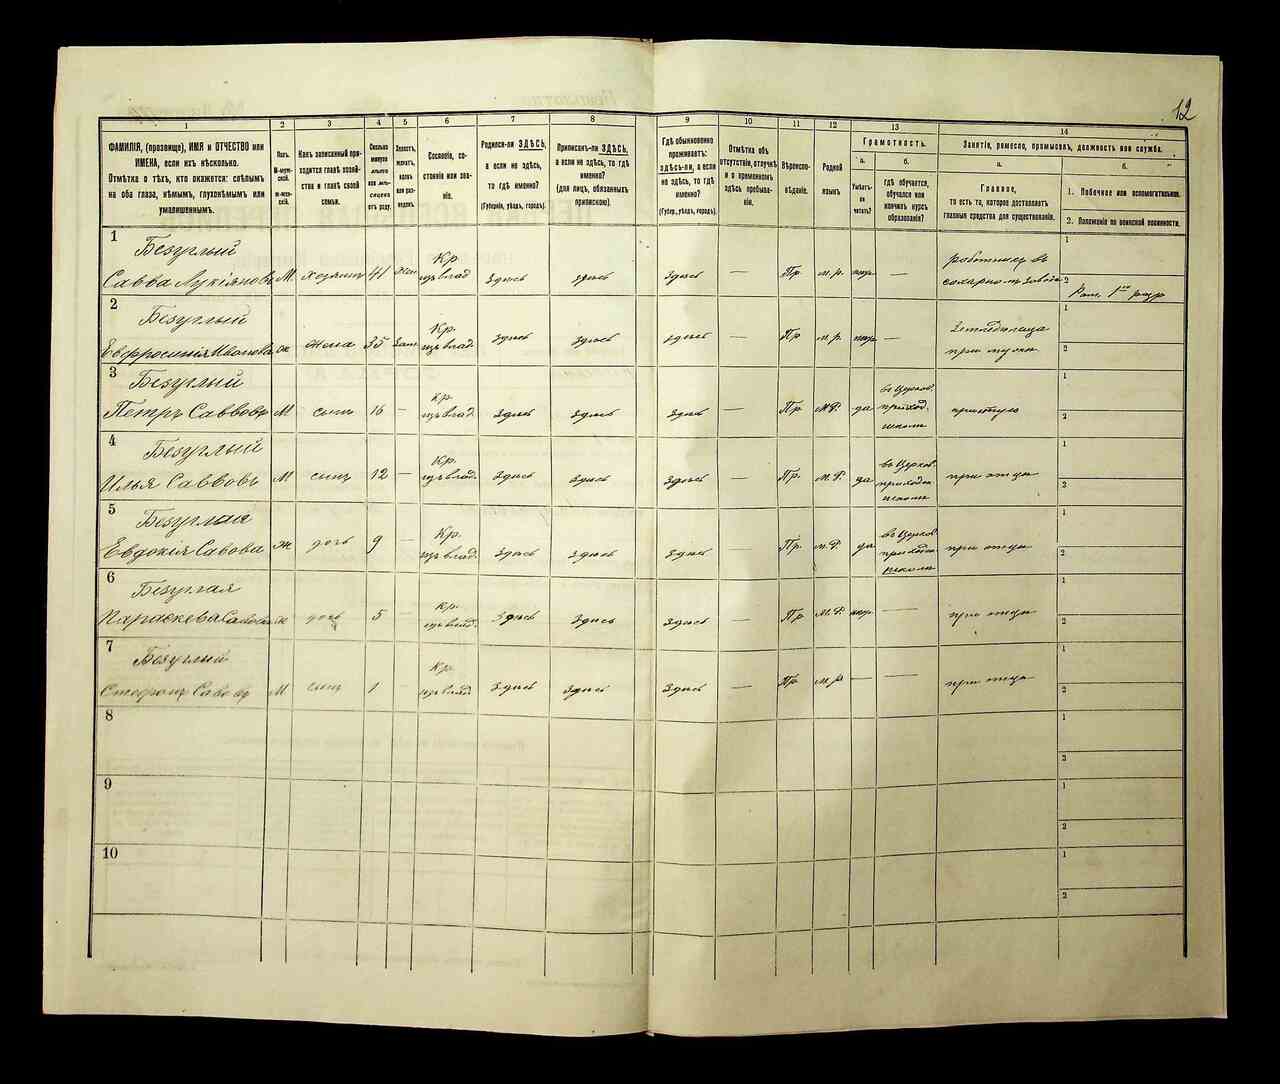 12
1 2 3 4 5 6 7 8 9 10 11 12 13 14
ФАМИЛІЯ, (прозвище), ИМЯ и ОТЧЕСТВО или
ИМЕНА, если ихъ нѣсколько.
Отмѣтка о тѣхъ, кто окажется: слѣпымъ
на оба глаза, нѣмымъ, глухонѣмымъ или
умалишеннымъ.
Полъ.
М-мужской.
Ж-женскій.
Какъ записанный приходится
главѣ хозяйства
и главѣ своей
семьи.
Сколько
минуло
лѣтъ
или мѣсяцевъ
отъ роду.
Холостъ,
женатъ,
вдовъ
или разведенъ.
Сословіе, состояніе
или званіе.
Родился-ли ЗДѢСЬ,
а если не здѣсь,
то гдѣ именно?
(Губернія, уѣздъ, городъ).
Приписанъ-ли ЗДѢСЬ,
а если не здѣсь, то гдѣ
именно?
(для лицъ, обязанныхъ
припискою).
Гдѣ обыкновенно
проживаетъ:
здѣсь-ли, а если
не здѣсь, то гдѣ
именно?
(Губер., уѣздъ, городъ).
Отмѣтка объ
отсутствіи, отлучкѣ
и о временномъ
здѣсь пребываніи.
Вѣроисповѣданіе.
Родной
языкъ.
Грамотность.
а.
Умѣетъ-ли
читать?
б.
гдѣ обучается,
обучался или
кончилъ курсъ
образованія?
Занятіе, ремесло, промыселъ, должность или служба.
а.
Главное,
то есть то, которое доставляетъ
главныя средства для существованія.
б.
1. Побочное или вспомогательное.
2. Положеніе по воинской повинности.
1 Безуглый
Савва Лукіяновъ М хозяинъ 41 жен Кр. изъ влад здѣсь здѣсь здѣсь — Пр. м.р. нѣтъ — работникъ въ сахарномъ заводѣ 1 2 Рат. 1го разр
2 Безуглый
Евфросинія Иванова ж жена 35 зам Кр. изъ влад здѣсь здѣсь здѣсь — Пр м.р. нѣтъ — при мужѣ 1 2
3 Безуглый
Петръ Саввовъ М сынъ 16 — Кр. изъ влад здѣсь здѣсь здѣсь — Пр. М.Р. да въ Церков. приход. школѣ 1 2
4 Безуглый
Илья Саввовъ М сынъ 12 — Кр. изъ влад. здѣсь здѣсь здѣсь — Пр. М.Р. да въ Церков. приходск школѣ при отцѣ 1 2
5 Безуглая
Евдокія Савова ж дочь 9 — Кр. изъ влад. здѣсь здѣсь здѣсь — Пр. м.Р. да въ Церков приходск школѣ при отцѣ 1 2
6 Безуглая
Параскева Савова ж дочь 5 — Кр. изъ влад. здѣсь здѣсь здѣсь — Пр М.Р. нѣтъ — при отцѣ 1 2
7 Безуглый
Стефанъ Савовъ М сынъ 1 — Кр. изъ влад здѣсь здѣсь здѣсь — Пр. м.р — — при отцѣ 1 2
8 1 2
9 1 2
10 1 2